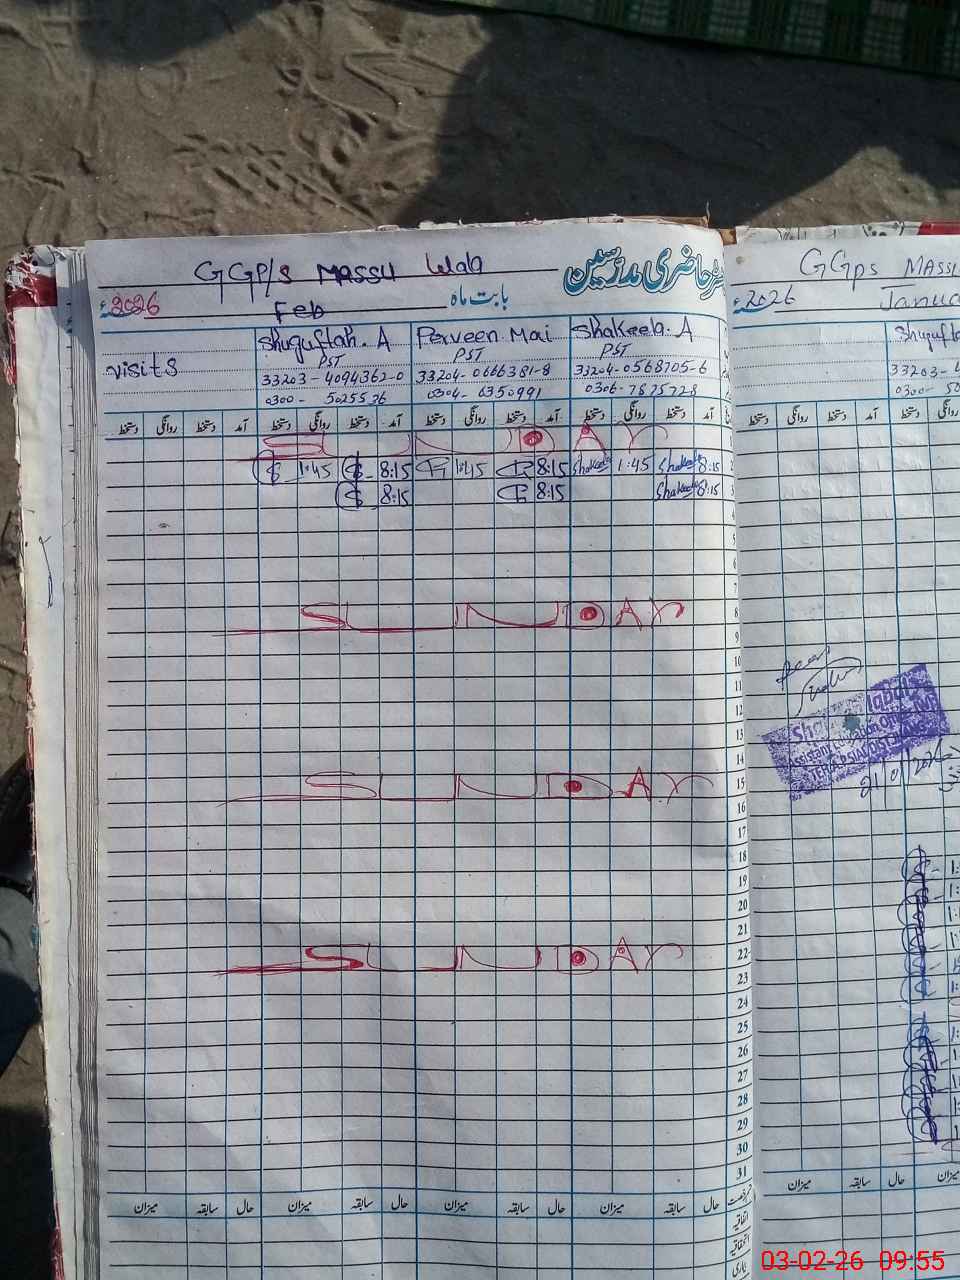 GGP/S MASSU Wala
رجسٹر حاضری مدرسین
2026ء
Feb
بابت ماہ
visits
Shuguftah. A
Perveen Mai
Shakeela. A
PST
PST
PST
33203-4094362-0
33204-0666381-8
33204-0568705-6
0300-5025526
0304-6350991
0306-7875728
دستخط روانگی دستخط آمد دستخط روانگی دستخط آمد دستخط روانگی دستخط آمد دستخط روانگی دستخط آمد
SUNDAY
1:45 8:15 1:45 8:15 Shakeela 1:45 Shakeela 8:15 2
8:15 8:15 Shakeela 8:15 3
4
5
6
7
SUNDAY 8
9
10
11
12
13
14
SUNDAY 15
16
17
18
19
20
21
SUNDAY 22
23
24
25
26
27
28
29
30
31
میزان سابقہ حال میزان سابقہ حال میزان سابقہ حال میزان سابقہ حال
اتفاقیہ
استحقاقیہ
بیماری
GGPS MASSU
2026ء
Janua
Shugufta
33203-4
0300-50
دستخط روانگی دستخط آمد دستخط
Iqbal
Assistant Education Officer
میزان سابقہ حال میزان
03-02-26 09:55